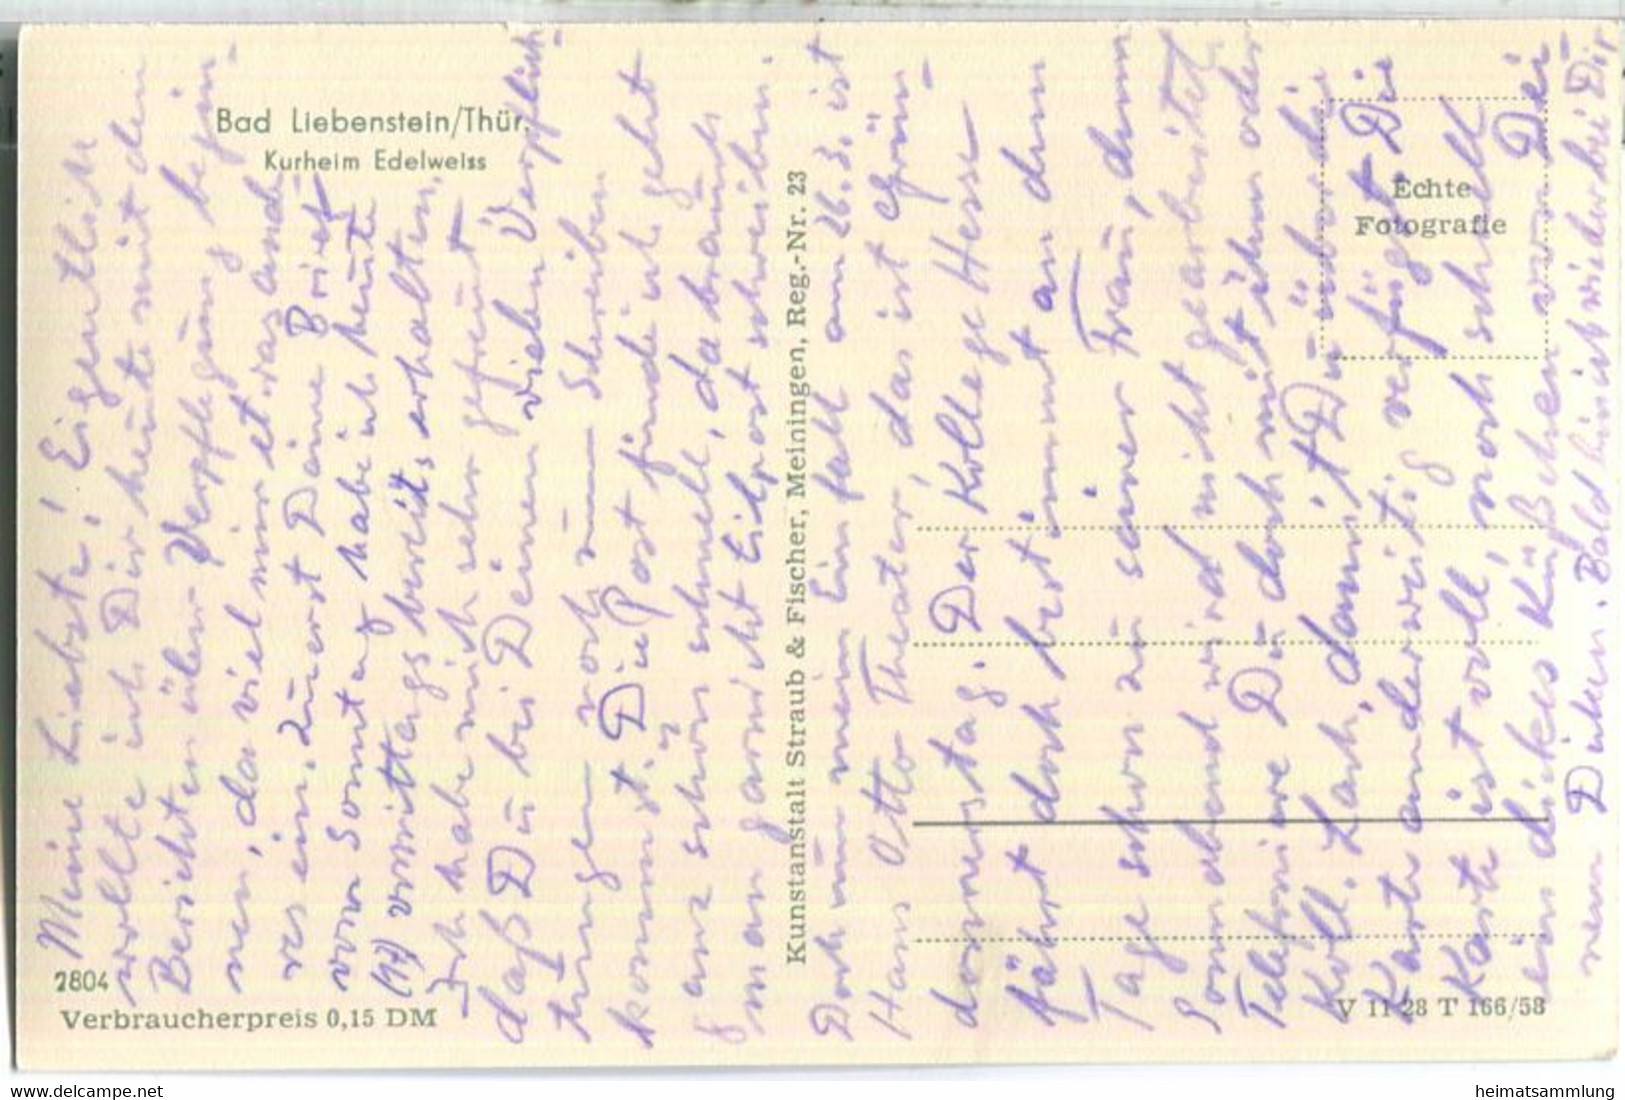 Bad Liebenstein/Thür.
Kurheim Edelweiss
Echte
Fotografie
Kunstanstalt Straub & Fischer, Meiningen, Reg.-Nr. 23
2804
Verbraucherpreis 0,15 DM
V 11 28 T 166/58
Meine Liebste! Eigentlich
wollte ich Dir heute mit den
Berichten über Verpflegung begin-
nen, da viel mir etwas ande-
res ein. Zuerst Deine Brief
vom Sonntag habe ich heute
(17) vormittags bereits erhalten.
Ich habe mich sehr gefreut
daß Du bei Deinen vielen Verpflich-
tungen noch zum Schreiben
kommst. Die Post finde ich geht
ganz schön schnell, da braucht
man garnicht Eilpost schreiben.
Doch nun mein Einfall am 26.3. ist
Hans Otto Theater, das ist Grün-
donnerstag. Der Kollege Hesse
fährt doch bestimmt an dem
Tage schon zu seiner Frau, denn
Sonnabend wird nicht gearbeitet
Telefoniere Du doch mit ihm oder
Koll. Lach, damit Du über die
Karte anderweitig verfügst Die
Karte ist voll, noch schnell
ein dickes Küßchen von Dei
nem Dicken. Bald bin ich wieder bei Dir
delcampe.net
heimatsammlung